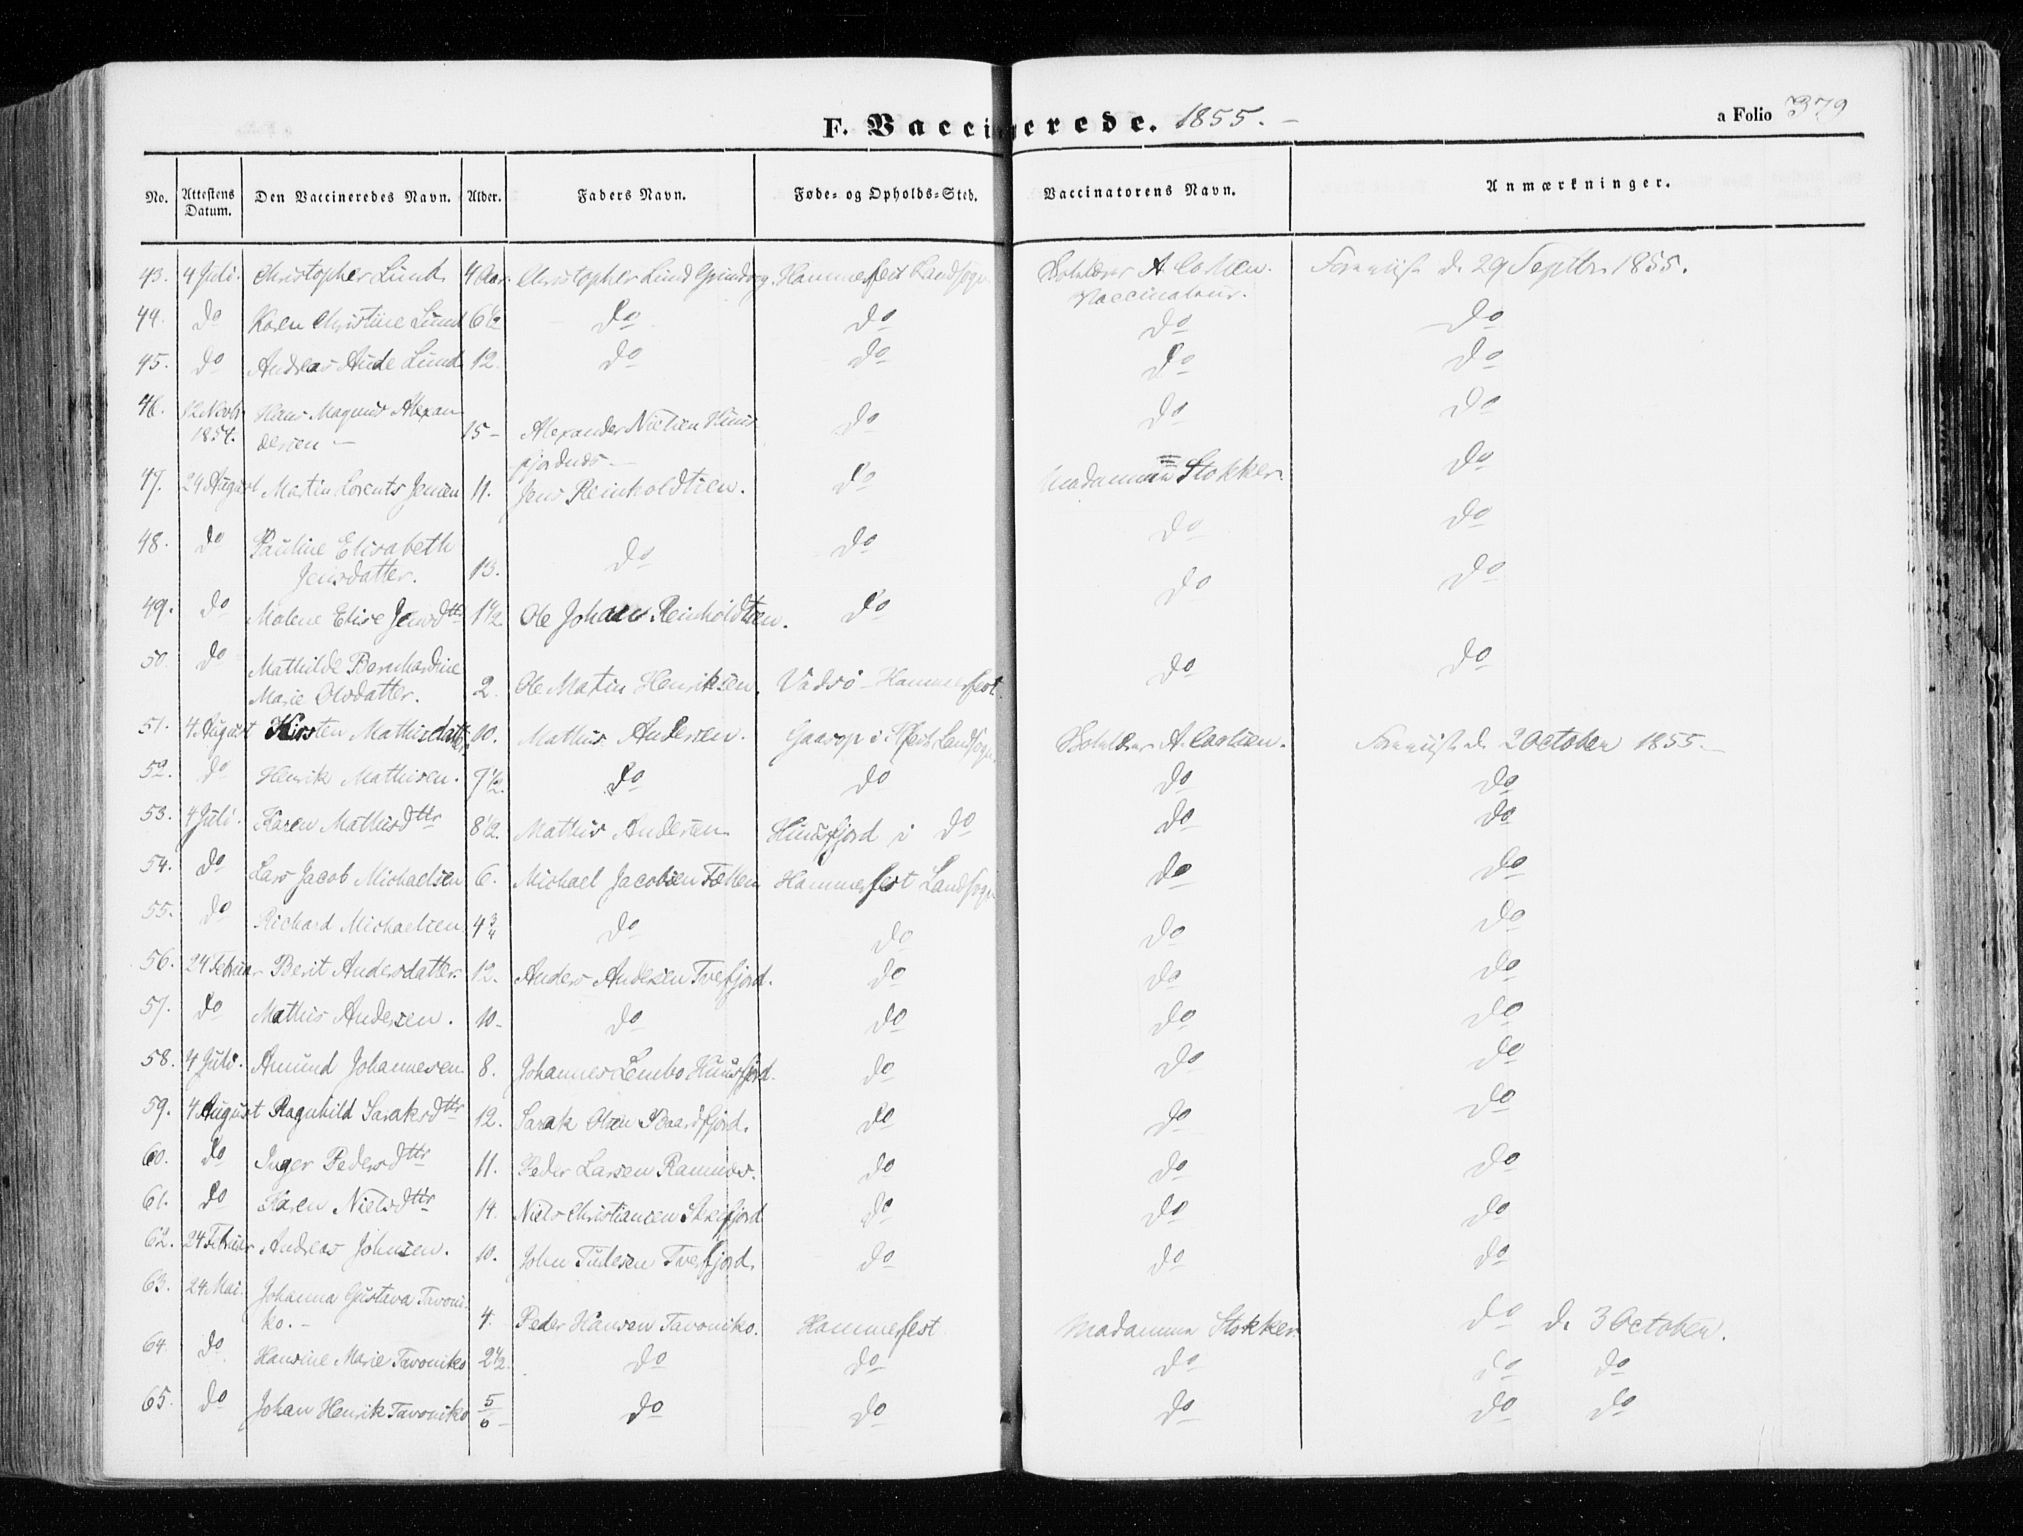 F. Vaccinerede. 1855. a Folio 379
No. Attestens Datum. Den Vaccineredes Navn. Alder. Faders Navn. Føde- og Opholds-Sted. Vaccinatorens Navn. Anmærkninger.
43. 4 Juli. Christopher Lund 4 Aar. Christopher Lund Hammerfest Landsogn A 29 Septbr. 1855.
Vaccinateur.
44. do Karen Christine Lund 6 1/2 do do do do
45. do Andreas Aude Lund 12. do do do do
46. 12 Novbr 1854. Hans Magnus Alexan
dersen 15 Alexander Nielsen do do do
47. 24 August Martin Lorents Jensen 11. Jens Reinholdtsen. do Madamme Stokker. do
48. do Pauline Elisabeth
Jensdatter. 13. do do do do
49. do Malene Elise Jensdtr 1 1/2 Ole Johan Reinholdtsen. do do do
50. do Mathilde Bernhardine
Marie Olsdatter. 2. Ole Martin Henriksen. Vadsö - Hammerfest. do do
51. 4 August Kirsten Mathisdatter 10. Mathis Andersen. i Landsogn A. 2 October 1855.
52. do Henrik Mathisen. 7 1/2. do do do do
53. 4 Juli. Karen Mathisdttr 8 1/2. Mathis Andersen. i do do do
54. do Lars Jacob Michaelsen 6. Michael Jacobsen Hammerfest Landsogn do do
55. do Richard Michaelsen 4 3/4 do do do do
56. 24 Februar Berit Andersdatter 12. Anders Andersen Tverfjord. do do do
57. do Mathis Andersen. 10. do do do do
58. 4 Juli. Amund Johannesen 8. Johannes Lembo do do do
59. 4 August Ragnhild Saraksdttr 12. Sarak Olsen Baardfjord. do do do
60. do Inger Pedersdttr 11. Peder Larsen Ramnes. do do do
61. do Karen Nielsdttr 14. Niels Christiansen do do do
62. 24 Februar Andreas Johnsen. 10. John Tudesen Tverfjord. do do do
63. 24 Mai. Johanna Gustava Tavoni
ko. 4. Peder Hansen Tavoniko. Hammerfest Madamme Stokker do d. 3 October.
64. do Hansine Marie Tavoniko 2 1/2. do do do do do
65. do Johan Henrik Tavoniko 5/6 do do do do do